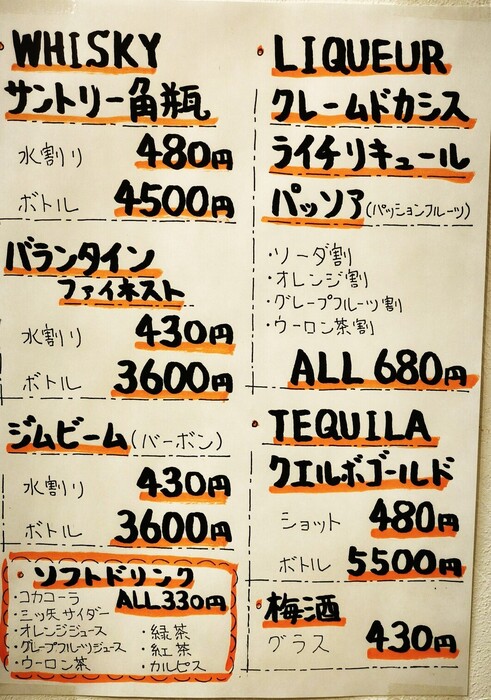 WHISKY
サントリー角瓶
水割り 480円
ボトル 4500円
バランタイン
ファイネスト
水割り 430円
ボトル 3600円
ジムビーム(バーボン)
水割り 430円
ボトル 3600円
ソフトドリンク
ALL 330円
・コカコーラ
・三ッ矢サイダー
・オレンジジュース
・グレープフルーツジュース
・ウーロン茶
・緑茶
・紅茶
・カルピス
LIQUEUR
クレームドカシス
ライチリキュール
パッソア(パッションフルーツ)
・ソーダ割
・オレンジ割
・グレープフルーツ割
・ウーロン茶割
ALL 680円
TEQUILA
クエルボゴールド
ショット 480円
ボトル 5500円
梅酒
グラス 430円